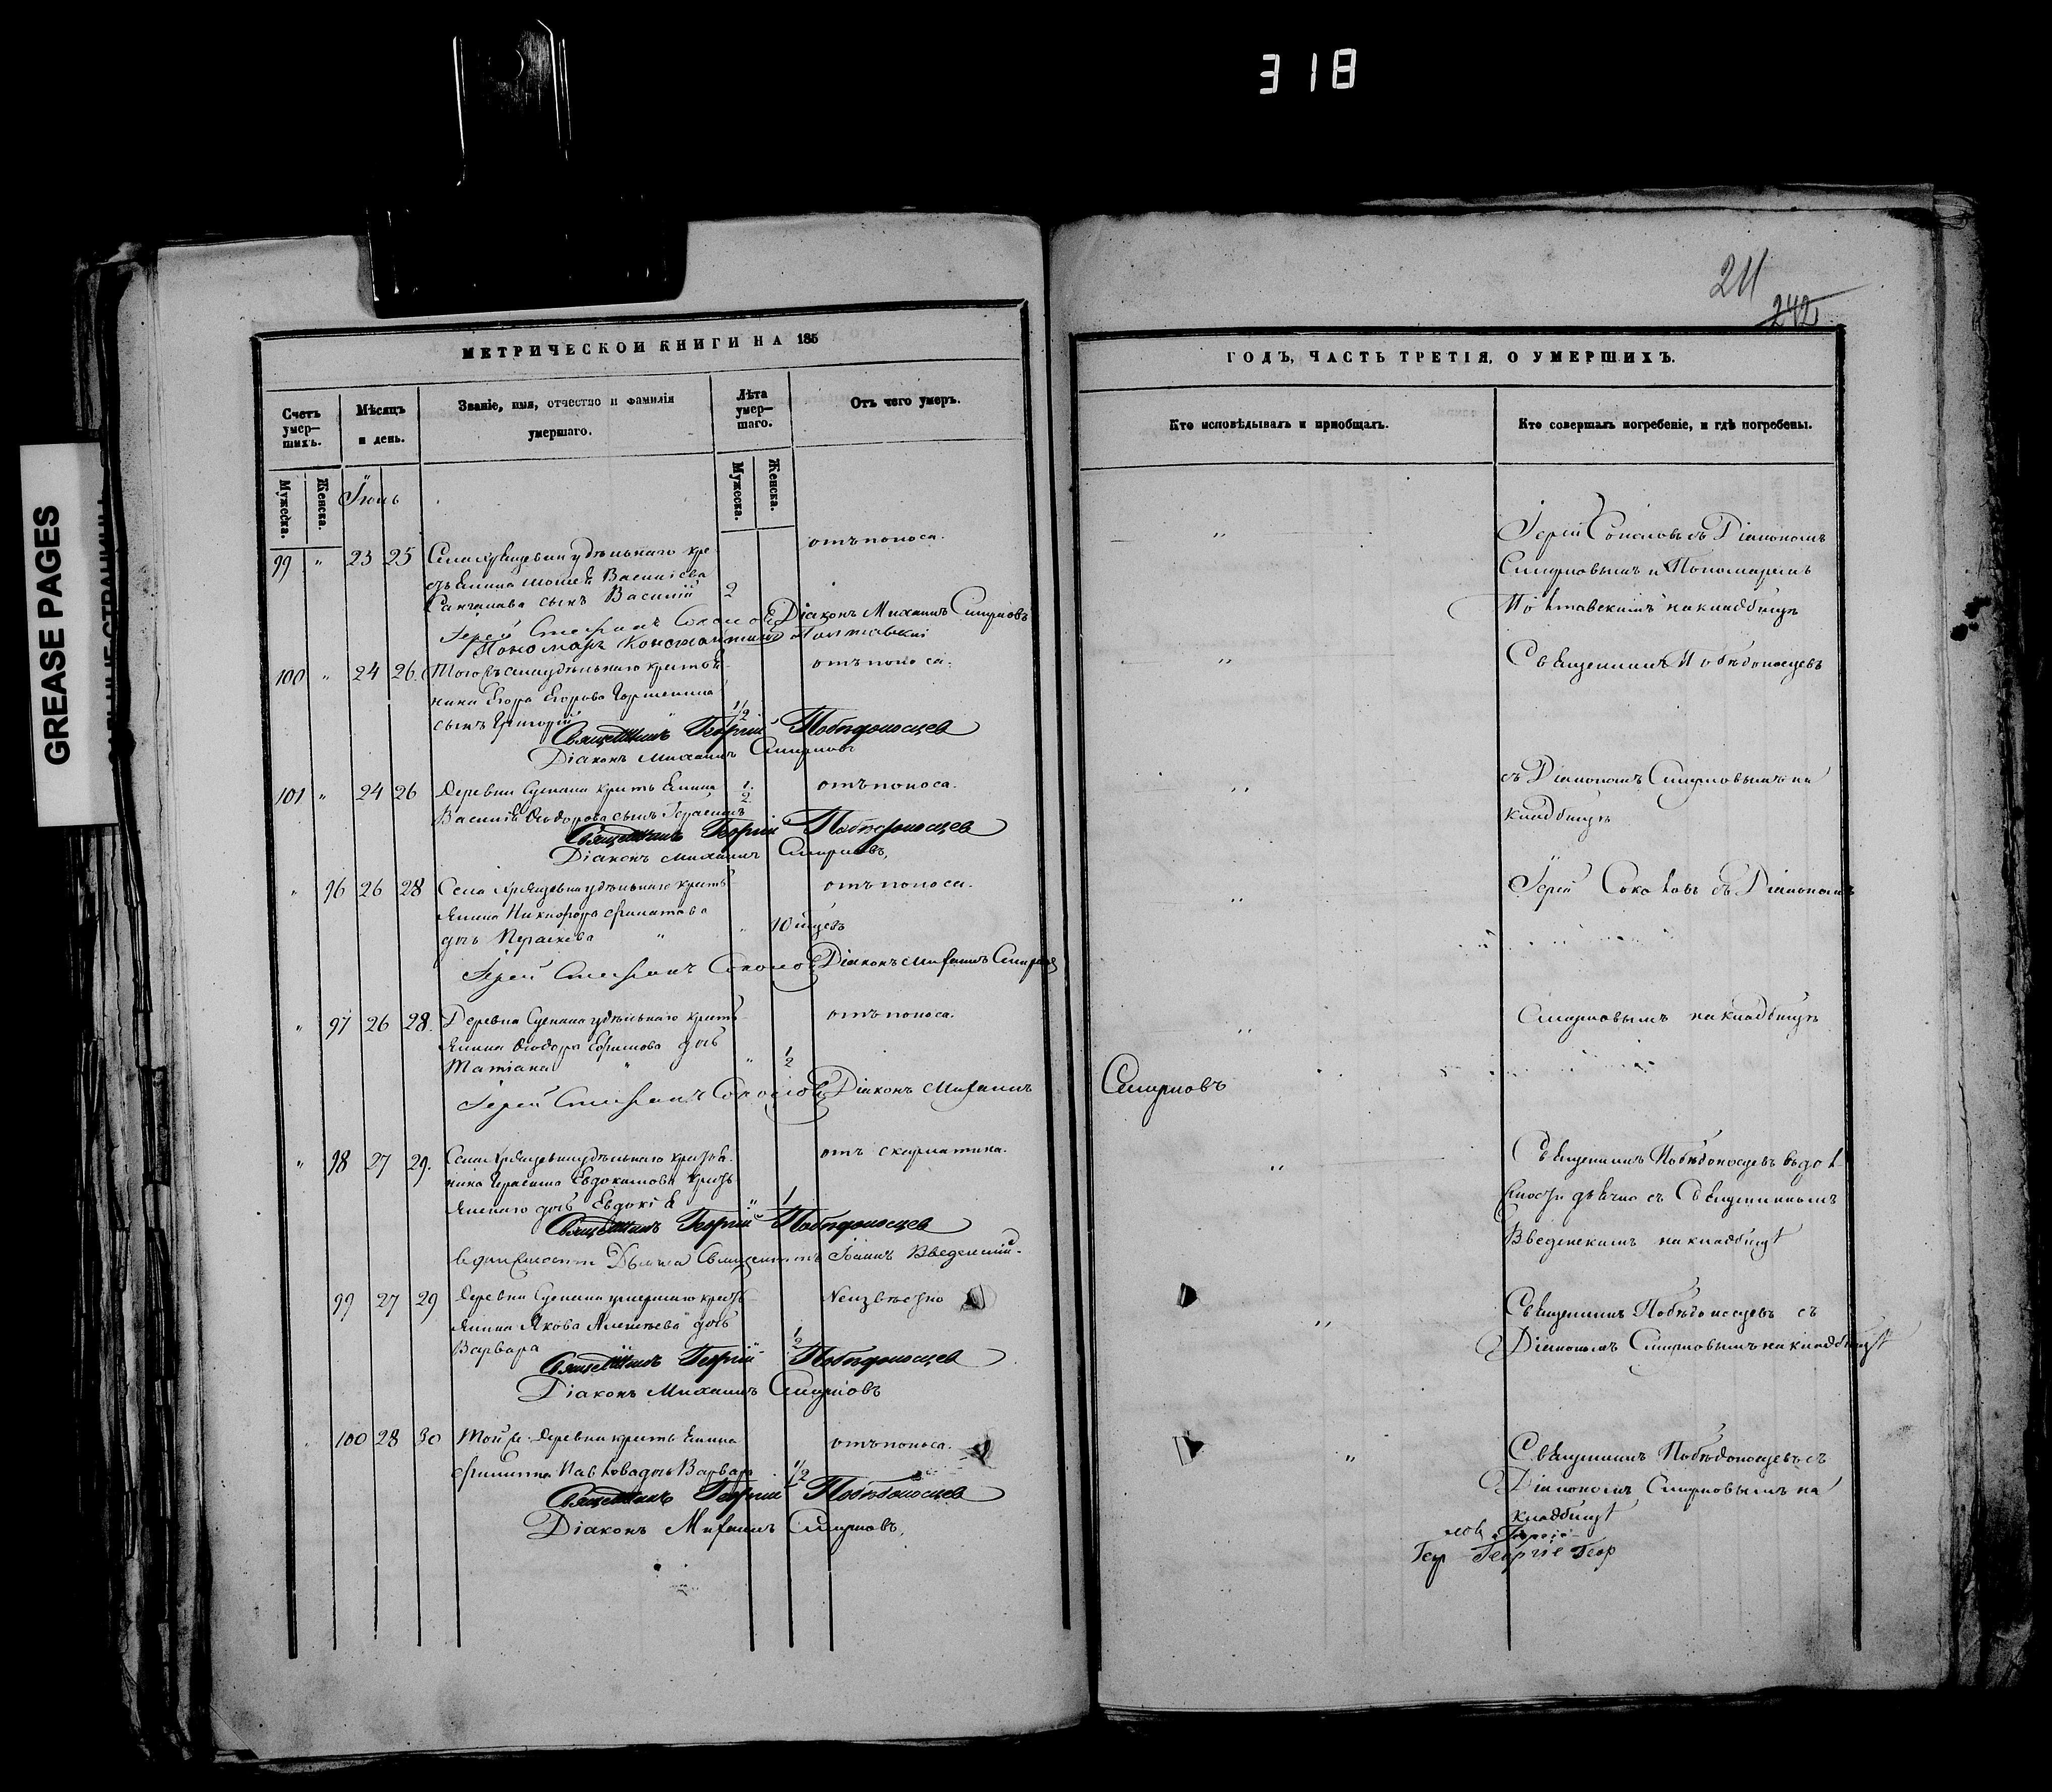 318
GREASE PAGES
211
242
МЕТРИЧЕСКОЙ КНИГИ НА 185
Счетъ умер-шихъ.
Мѣсяцъ и день.
Званіе, имя, отчество и фамилія умершаго.
Лѣта умер-шаго.
Отъ чего умеръ.
Мужеска.
Женска.
Мужеска.
Женска.
Іюль
99 " 23 25 Села удѣльнаго кре
сына Василій 2 отъ поноса.
Іерей Стефанъ Соколовъ Діаконъ Михаилъ Смирновъ
Пономарь Константинъ Полтавскій
100 " 24 26. Тогожъ села удѣльнаго крестья
нина Егора Егорова
сынъ Григорій 1/2 отъ поноса.
Священникъ Георгій Побѣдоносцев
Діаконъ Михаилъ Смирновъ
101 " 24 26 Деревни крестьянина 1/2 отъ поноса.
Василія Ѳеодорова сынъ Герасимъ
Священникъ Георгій Побѣдоносцев
Діаконъ Михаилъ Смирновъ,
" 96 26 28 Села удѣльнаго кресть
янина Никифора Филатова
дочь " " 10 мѣсяцъ отъ поноса.
Іерей Стефанъ Соколовъ Діаконъ Михаилъ Смирнов
" 97 26 28. Деревни удѣльнаго кресть
янина Ѳеодора Ефимова дочь
Татіана " " 1/2 отъ поноса.
Іерей Стефанъ Соколовъ Діаконъ Михаилъ
" 98 27 29. Села удѣльнаго крестья-
нина Герасима Евдокимова
дочь Евдокія " 1 отъ скарлатина.
Священникъ Георгій Побѣдоносцев
Священникъ Іоаннъ Введенскій.
99 27 29 Деревни умершаго кресть
янина Якова Алексѣева дочь
Варвара 1/2 Неизвѣстно
Священникъ Георгій Побѣдоносцев
Діаконъ Михаилъ Смирновъ
100 28 30 Той же деревни крестьянина
Филиппа Павлова дочь Варвара 1/2 отъ поноса.
Священникъ Георгій Побѣдоносцев
Діаконъ Михаилъ Смирновъ,
ГОДЪ, ЧАСТЬ ТРЕТІЯ, О УМЕРШИХЪ.
Кто исповѣдывалъ и пріобщалъ.
Кто совершалъ погребеніе, и гдѣ погребены.
" Іерей Соколовъ съ Діакономъ
Смирновымъ и Пономаремъ
Полтавскимъ на кладбищѣ
" Священникъ Побѣдоносцевъ
" съ Діакономъ Смирновымъ на
кладбищѣ
" Іерей Соколовъ съ Діакономъ
" Смирновымъ на кладбищѣ
Смирновъ
" Священникъ Побѣдоносцевъ
съ Священникомъ
Введенскимъ на кладбищѣ
" Священникъ Побѣдоносцевъ съ
Діакономъ Смирновымъ на кладбищѣ
" Священникъ Побѣдоносцевъ съ
Діакономъ Смирновымъ на
кладбищѣ
Геор Георгіе Геор